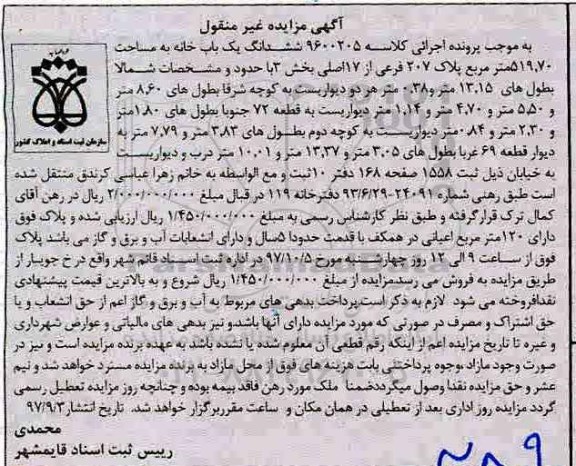 آگهی مزایده غیر منقول
به موجب پرونده اجرائی کلاسه ۹۶۰۰۲۰۵ ششدانگ یک باب خانه به مساحت
۵۱۹,۷۰متر مربع پلاک ۲۰۷ فرعی از ۱۷اصلی بخش ۳با حدود و مشخصات شمالا
بطول های ۱۳,۱۵ متر و۰,۳۸ متر هر دو دیواریست به کوچه شرقا بطول های ۸,۶۰ متر
و ۵,۵۰ متر و ۴,۷۰ متر و ۱,۱۴ متر دیواریست به قطعه ۷۲ جنوبا بطول های ۱,۸۰متر
و ۲,۳۰ متر و ۰,۸۴متر دیواریست به کوچه دوم بطول های ۳,۸۳ متر و ۷,۷۹ متر به
دیوار قطعه ۶۹ غربا بطول های ۳,۰۵ متر و ۱۳,۳۷ متر و ۱۰,۰۱ متر درب و دیواریست
به خیابان ذیل ثبت ۱۵۵۸ صفحه ۱۶۸ دفتر ۱۰ثبت و مع الواسطه به خانم زهرا عباسی کرندق منتقل شده
است طبق رهنی شماره ۲۴۰۹۱-۹۳/۶/۲۹ دفترخانه ۱۱۹ در قبال مبلغ ۲/۰۰۰/۰۰۰/۰۰۰ ریال در رهن آقای
کمال ترک قرارگرفته و طبق نظر کارشناس رسمی به مبلغ ۱/۴۵۰/۰۰۰/۰۰۰ ریال ارزیابی شده و پلاک فوق
دارای ۱۲۰متر مربع اعیانی در همکف با قدمت حدودا ۵سال و دارای انشعابات آب و برق و گاز می باشد پلاک
فوق از ساعت ۹ الی ۱۲ روز چهارشنبه مورخ ۹۷/۱۰/۵ در اداره ثبت اسناد قائم شهر واقع در خ جویبار از
طریق مزایده به فروش می رسد.مزایده از مبلغ ۱/۴۵۰/۰۰۰/۰۰۰ ریال شروع و به بالاترین قیمت پیشنهادی
نقدافروخته می شود لازم به ذکر است،پرداخت بدهی های مربوط به آب و برق و گاز اعم از حق انشعاب و یا
حق اشتراک و مصرف در صورتی که مورد مزایده دارای آنها باشدونیز بدهی های مالیاتی و عوارض شهرداری
و غیره تا تاریخ مزایده اعم از اینکه رقم قطعی آن معلوم شده یا نشده باشد به عهده برنده مزایده است و نیز در
صورت وجود مازاد ،وجوه پرداختنی بابت هزینه های فوق از محل مازاد به برنده مزایده مسترد خواهد شد و نیم
عشر و حق مزایده نقدا وصول میگردد.ضمنا ملک مورد رهن فاقد بیمه بوده و چنانچه روز مزایده تعطیل رسمی
گردد مزایده روز اداری بعد از تعطیلی در همان مکان و ساعت مقرربرگزار خواهد شد. تاریخ انتشار۹۷/۹/۳
محمدی
رییس ثبت اسناد قایمشهر
سازمان ثبت اسناد و املاک کشور